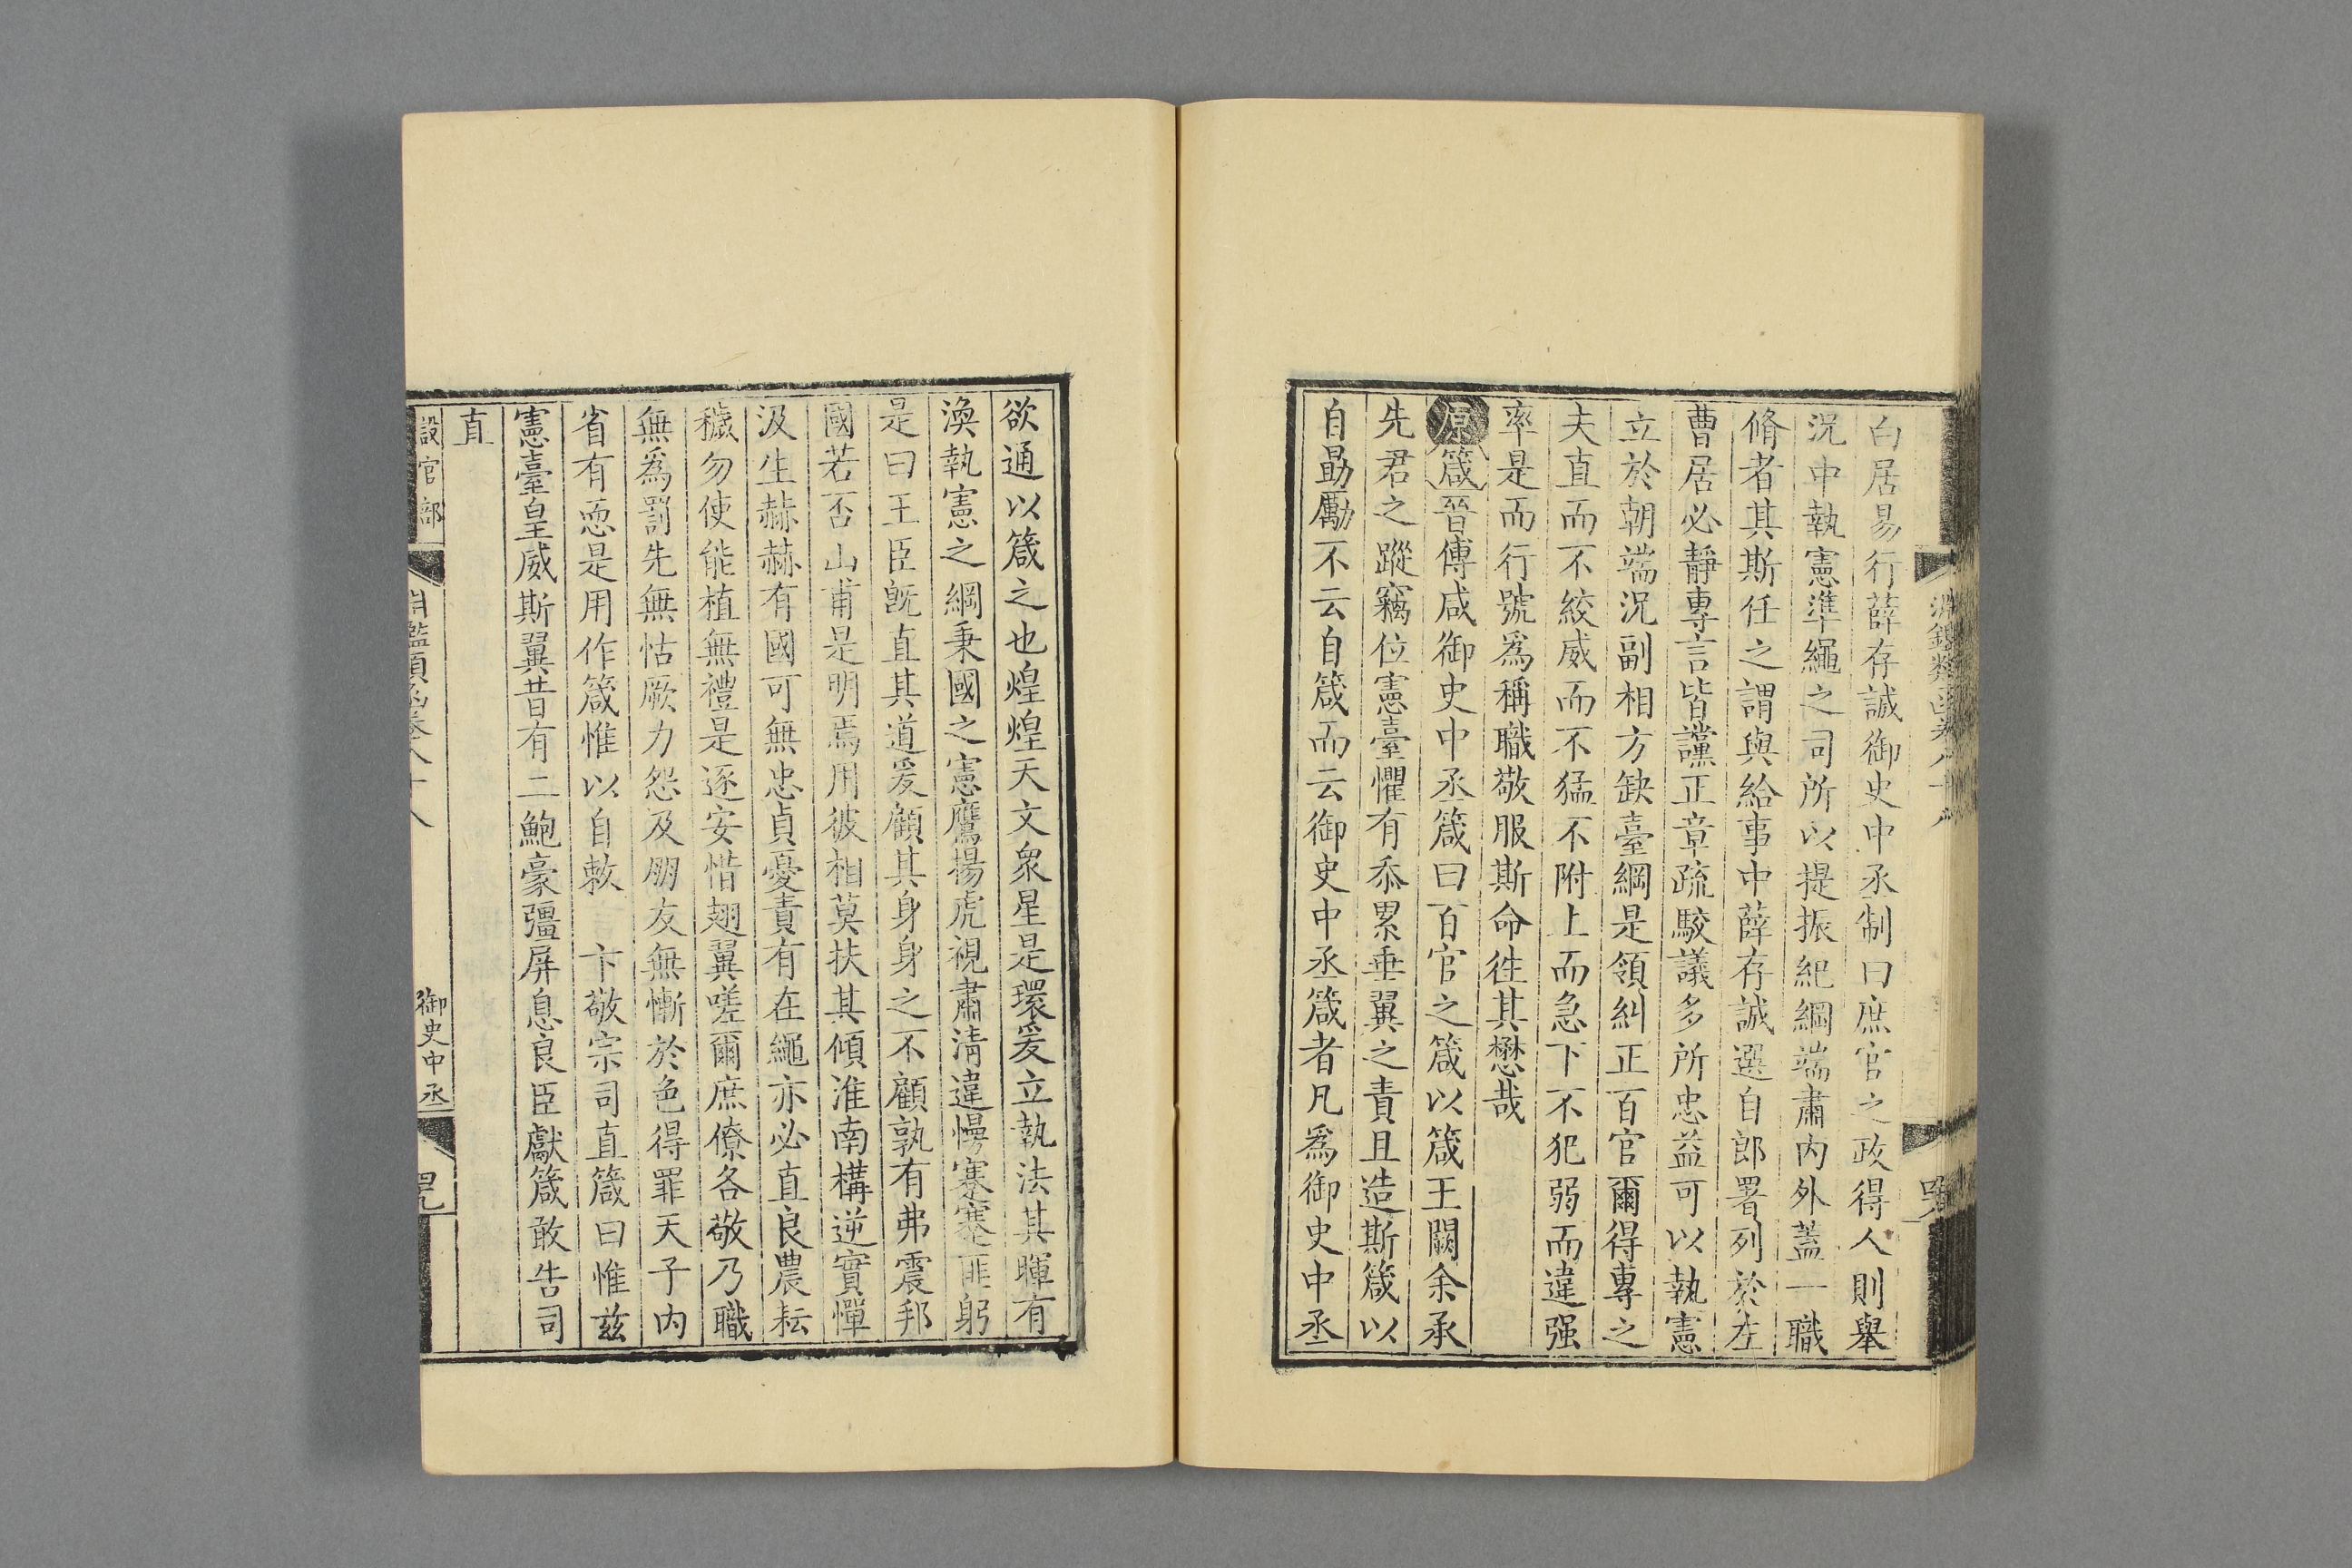 白居易行薛存誠御史中丞制曰庶官之政得人則舉
況中執憲準繩之司所以提振紀綱端肅內外蓋一職
脩者其斯任之謂與給事中薛存誠選自郎署列於左
曹居必靜專言皆讜正章疏駮議多所忠益可以執憲
立於朝端況副相方缺臺綱是領糾正百官爾得專之
夫直而不絞威而不猛不附上而急下不犯弱而違强
率是而行號爲稱職敬服斯命徃其懋哉
原箴晉傅咸御史中丞箴曰百官之箴以箴王闕余承
先君之蹤竊位憲臺懼有忝累垂翼之責且造斯箴以
自勗勵不云自箴而云御史中丞箴者凡爲御史中丞
欲通以箴之也煌煌天文衆星是環爰立執法其暉有
渙執憲之綱秉國之憲鷹揚虎視肅淸違慢蹇蹇匪躬
是曰王臣旣直其道爰顧其身身之不顧孰有弗震邦
國若否山甫是明焉用彼相莫扶其傾淮南構逆實憚
汲生赫赫有國可無忠貞憂責有在繩亦必直良農耘
穢勿使能植無禮是逐安惜翅翼嗟爾庶僚各敬乃職
無爲罰先無怙厥力怨及朋友無慚於色得罪天子內
省有恧是用作箴惟以自敕　卞敬宗司直箴曰惟茲
憲臺皇威斯翼昔有二鮑豪彊屏息良臣獻箴敢告司
直
設官部
御史中丞